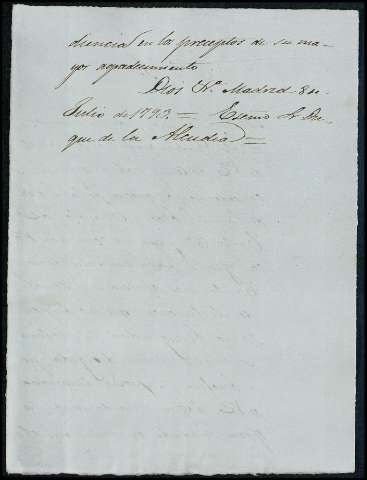 diencia en los preceptos de su ma-
yor agradecimiento
Dios &ª. Madrid 8 de
Julio de 1793. = Exmo Sr Du-
que de la Alcudia =